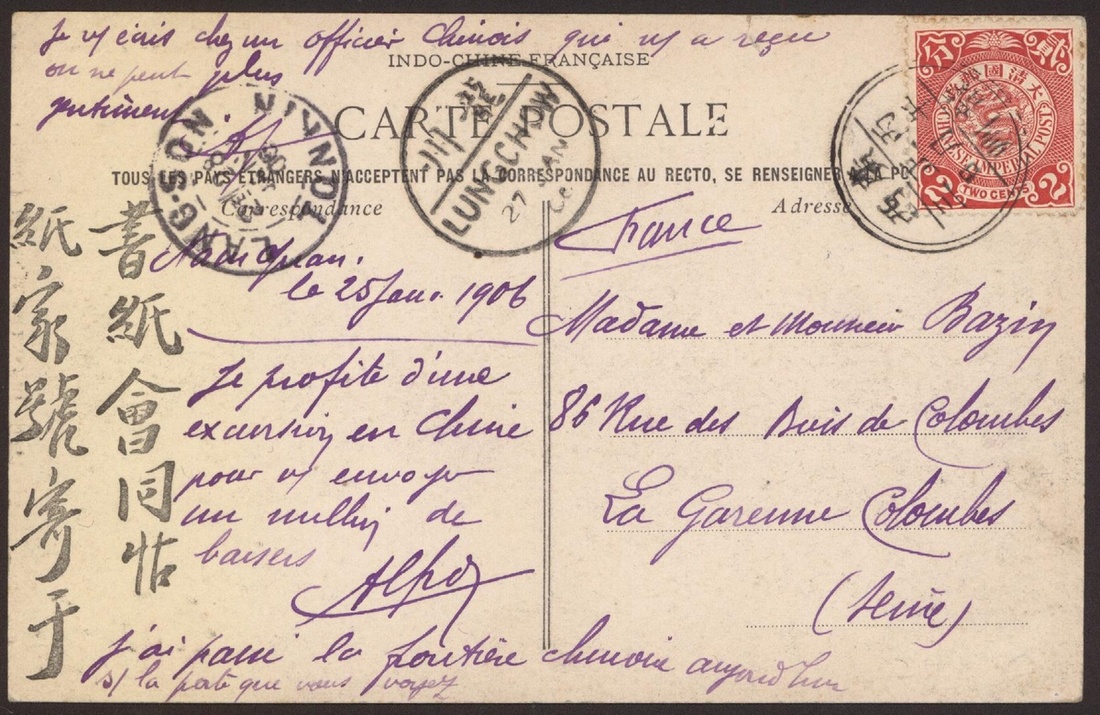 Je vs écris chez un officier Chinois qui m'a reçu
on ne peut plus
gentiment
INDO-CHINE FRANÇAISE
CARTE POSTALE
TOUS LES PAYS ÉTRANGERS N'ACCEPTENT PAS LA CORRESPONDANCE AU RECTO, SE RENSEIGNER A LA POSTE
Correspondance
Adresse
LANG-SON
TONKIN
LUNGCHOW
27 JAN
大清國郵政
貳分
CHINESE IMPERIAL POST
2 TWO CENTS 2
書紙會同帖
紙家號寄于
Nam Quan.
le 25 Janv. 1906
Je profite d'une
excursion en Chine
pour vs envoyer
un million de
baisers
J'ai passé la frontière chinoise aujourd'hui
s/ la porte que vous voyez
France
Madame et Monsieur Bazin
86 Rue des Bois de Colombes
La Garenne Colombes
(Seine)